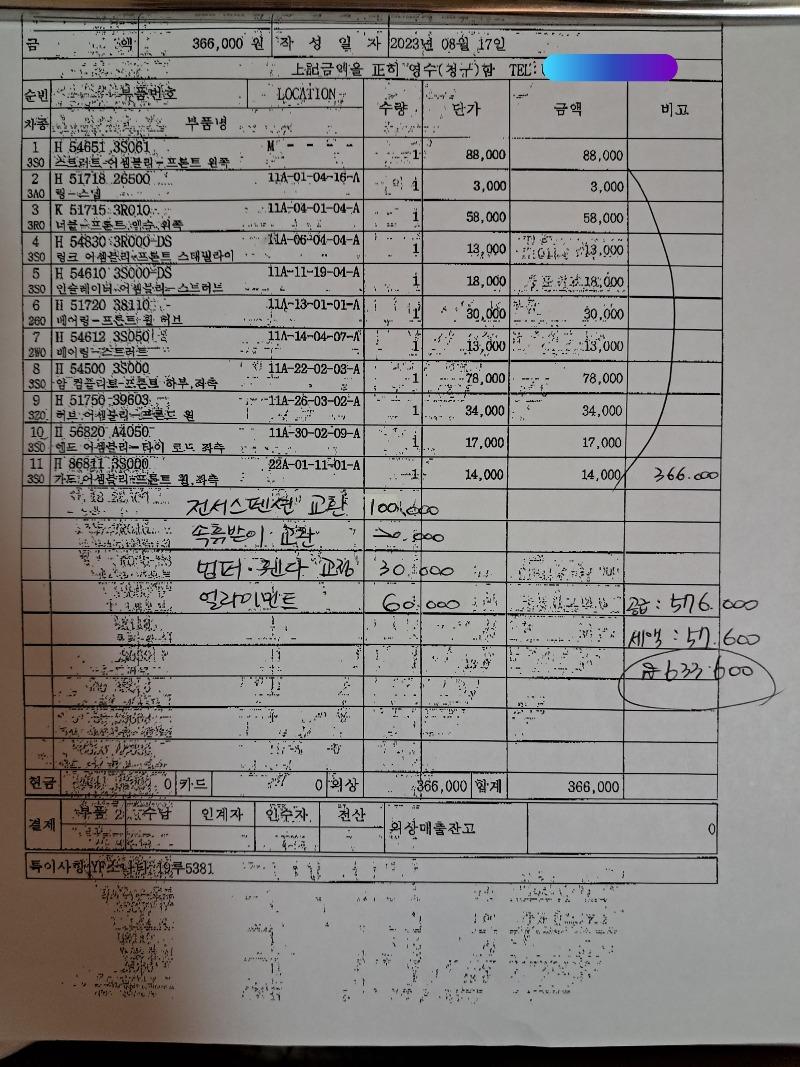 금 액 366,000 원 작 성 일 자 2023년 08월 17일
上記금액을 正히 영수(청구)함 TEL:
순번 부품번호 LOCATION 수량 단가 금액 비고
차종 부품명
1 H 54651 3S061 M - - - - 1 88,000 88,000
3S0 스트러트 어셈블리-프론트 왼쪽
2 H 51718 26500 11A-01-04-16-A 1 3,000 3,000
3A0 링-스냅
3 K 51715 3R010 11A-04-01-04-A 1 58,000 58,000
3R0 너클-프론트 액슬 왼쪽
4 H 54830 3R000-DS 11A-06-04-04-A 1 13,000 13,000
3S0 링크 어셈블리-프론트 스태빌라이
5 H 54610 3S000-DS 11A-11-19-04-A 1 18,000 18,000
3S0 인슐레이터 어셈블리-스트러트
6 H 51720 38110 11A-13-01-01-A 1 30,000 30,000
260 베어링-프론트 휠 허브
7 H 54612 3S050 11A-14-04-07-A 1 13,000 13,000
2W0 베어링-스트러트
8 H 54500 3S000 11A-22-02-03-A 1 78,000 78,000
3S0 암 컴플리트-프론트 하부,좌측
9 H 51750 39603 11A-26-03-02-A 1 34,000 34,000
허브 어셈블리-프론트 휠
10 H 56820 A4050 11A-30-02-09-A 1 17,000 17,000
3S0 엔드 어셈블리-타이 로드 좌측
11 H 86811 3S000 22A-01-11-01-A 1 14,000 14,000 366.000
3S0 가드 어셈블리-프론트 휠,좌측
전서스펜션 교환 100,000
교환 20.000
범퍼·휀다 교정 30.000
얼라이먼트 60.000 공급 : 576.000
세액 : 57.600
633.600
현금 0 카드 0 외상 366,000 합계 366,000
결제 부품 2 수납 인계자 인수자 전산 외상매출잔고 0
특이사항 YF소나타 19루5381